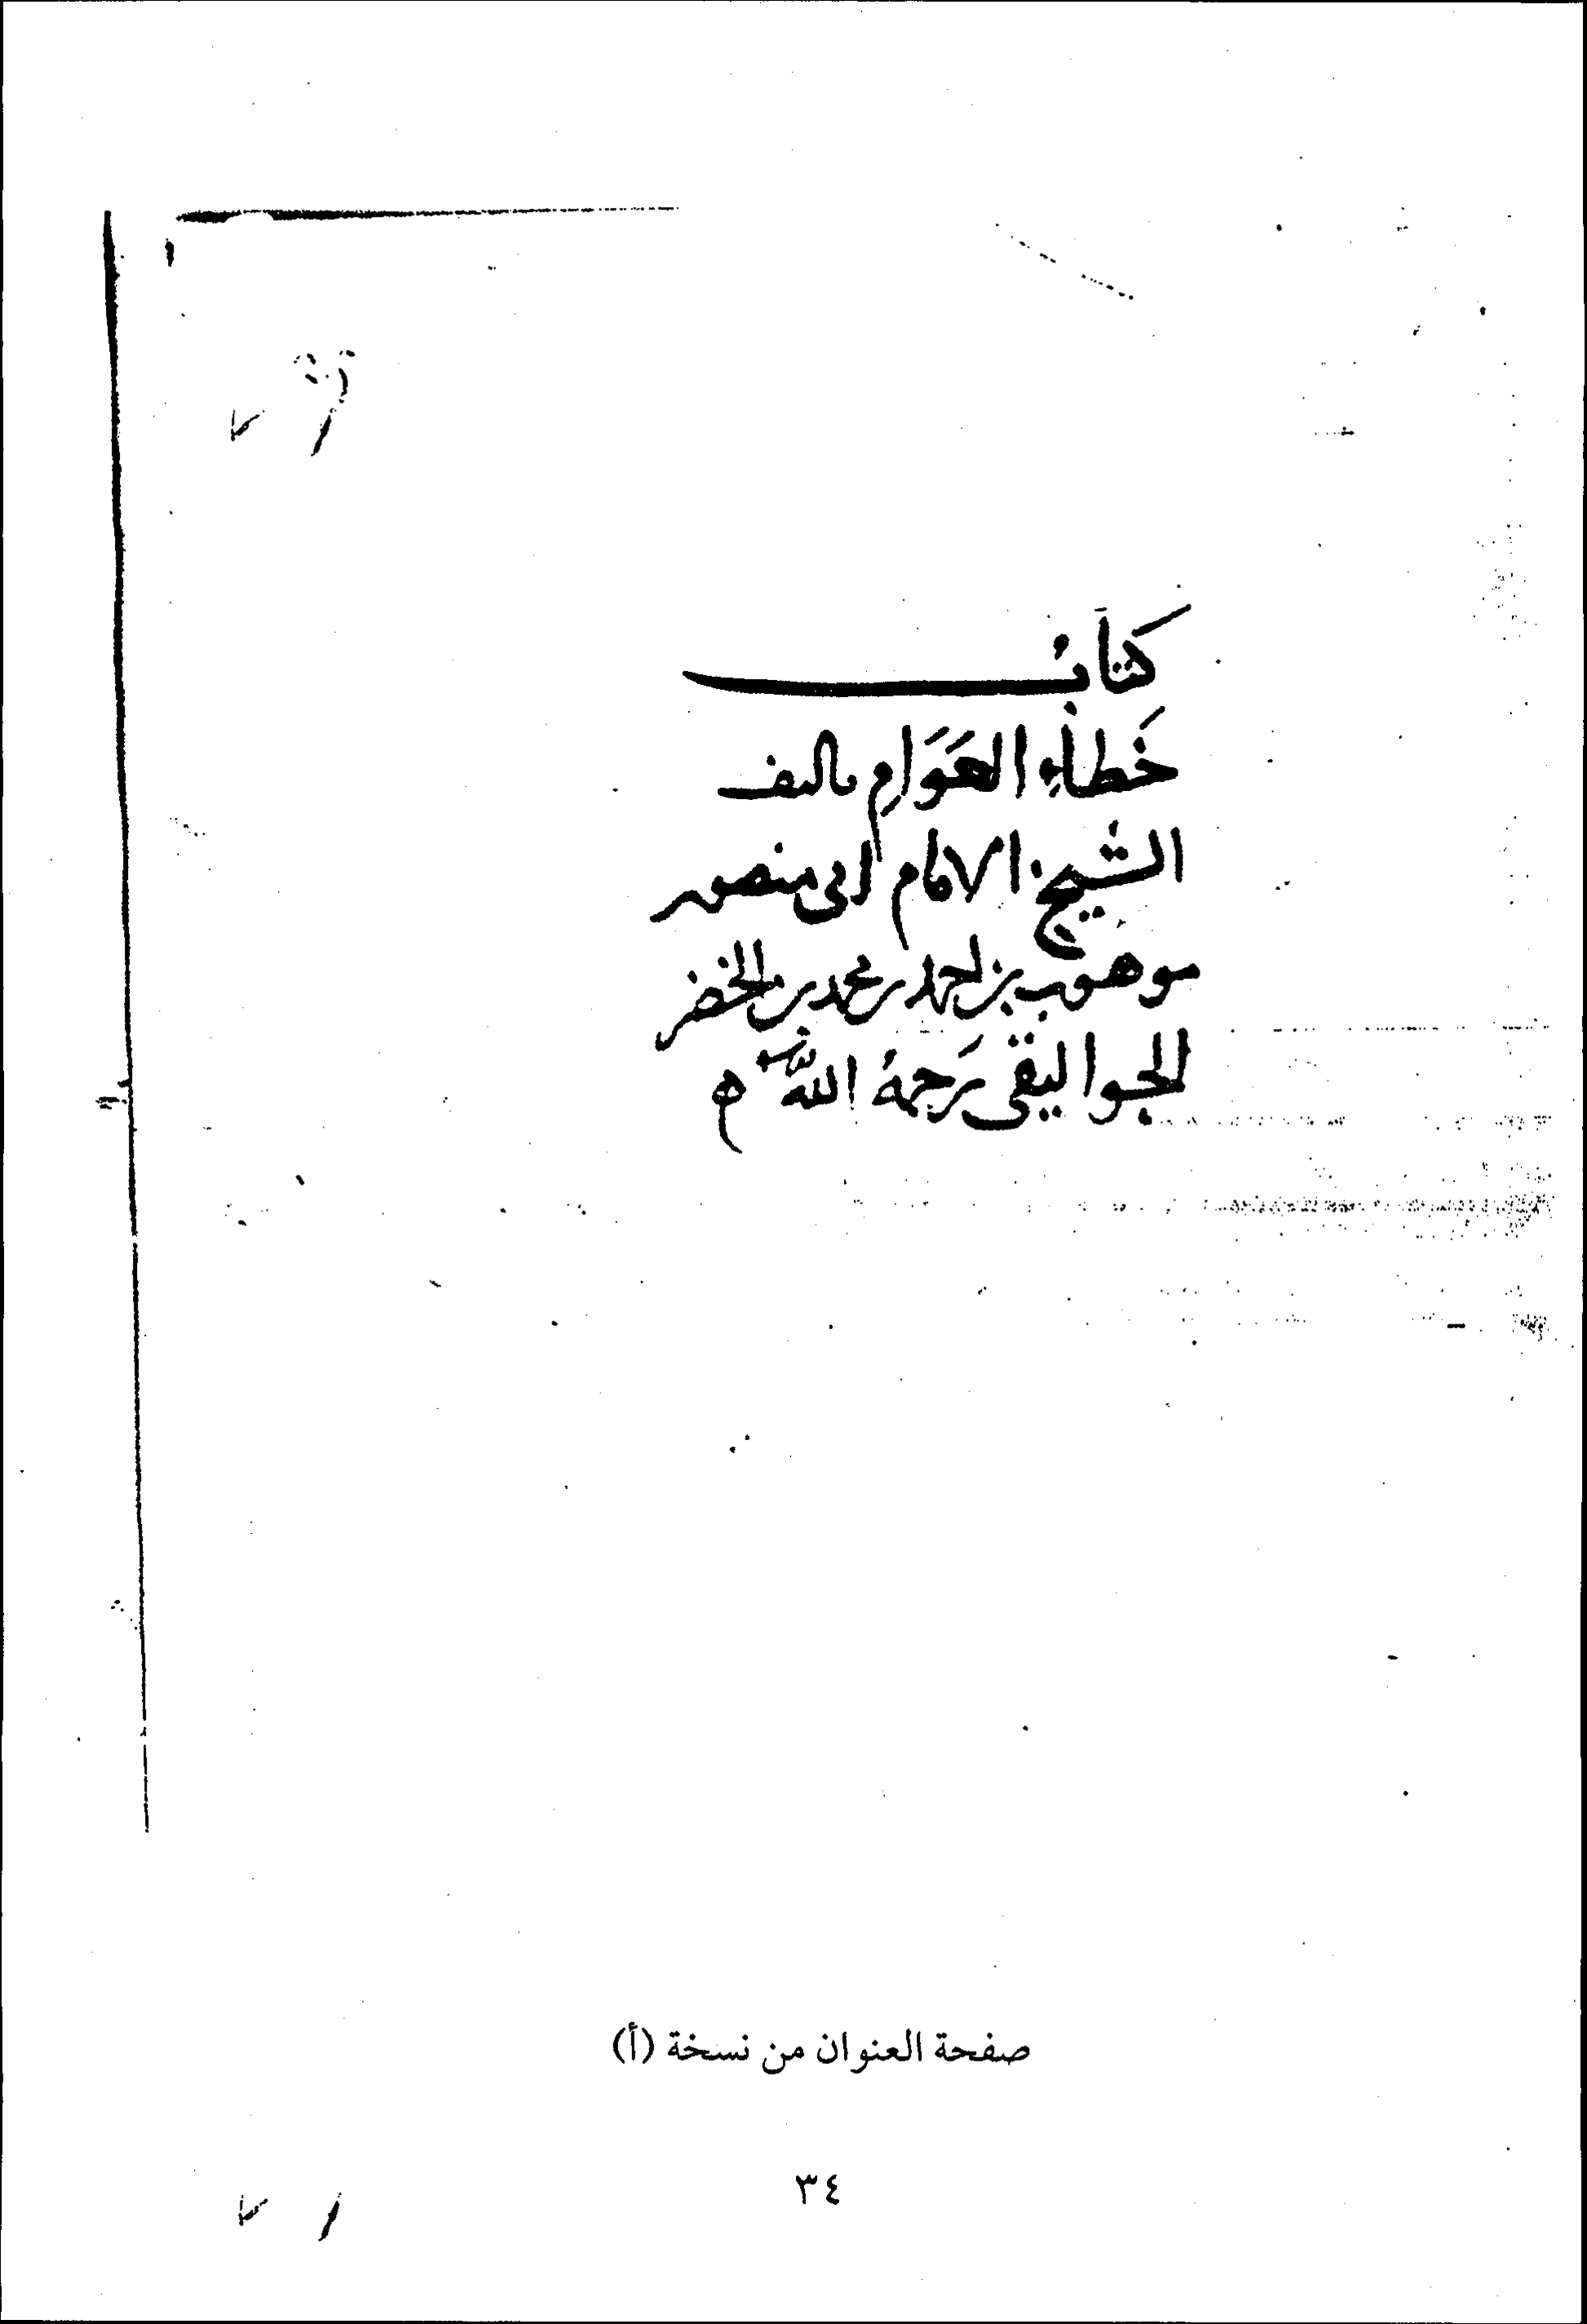 كتابُ
خَطاءِ العَوَامِ تاليف
الشيخ الامام ابى منصور
موهوب بن احمد بن محمد بن الخضر
الجواليقى رَحمهُ اللّه
صفحة العنوان من نسخة (أ)
٣٤